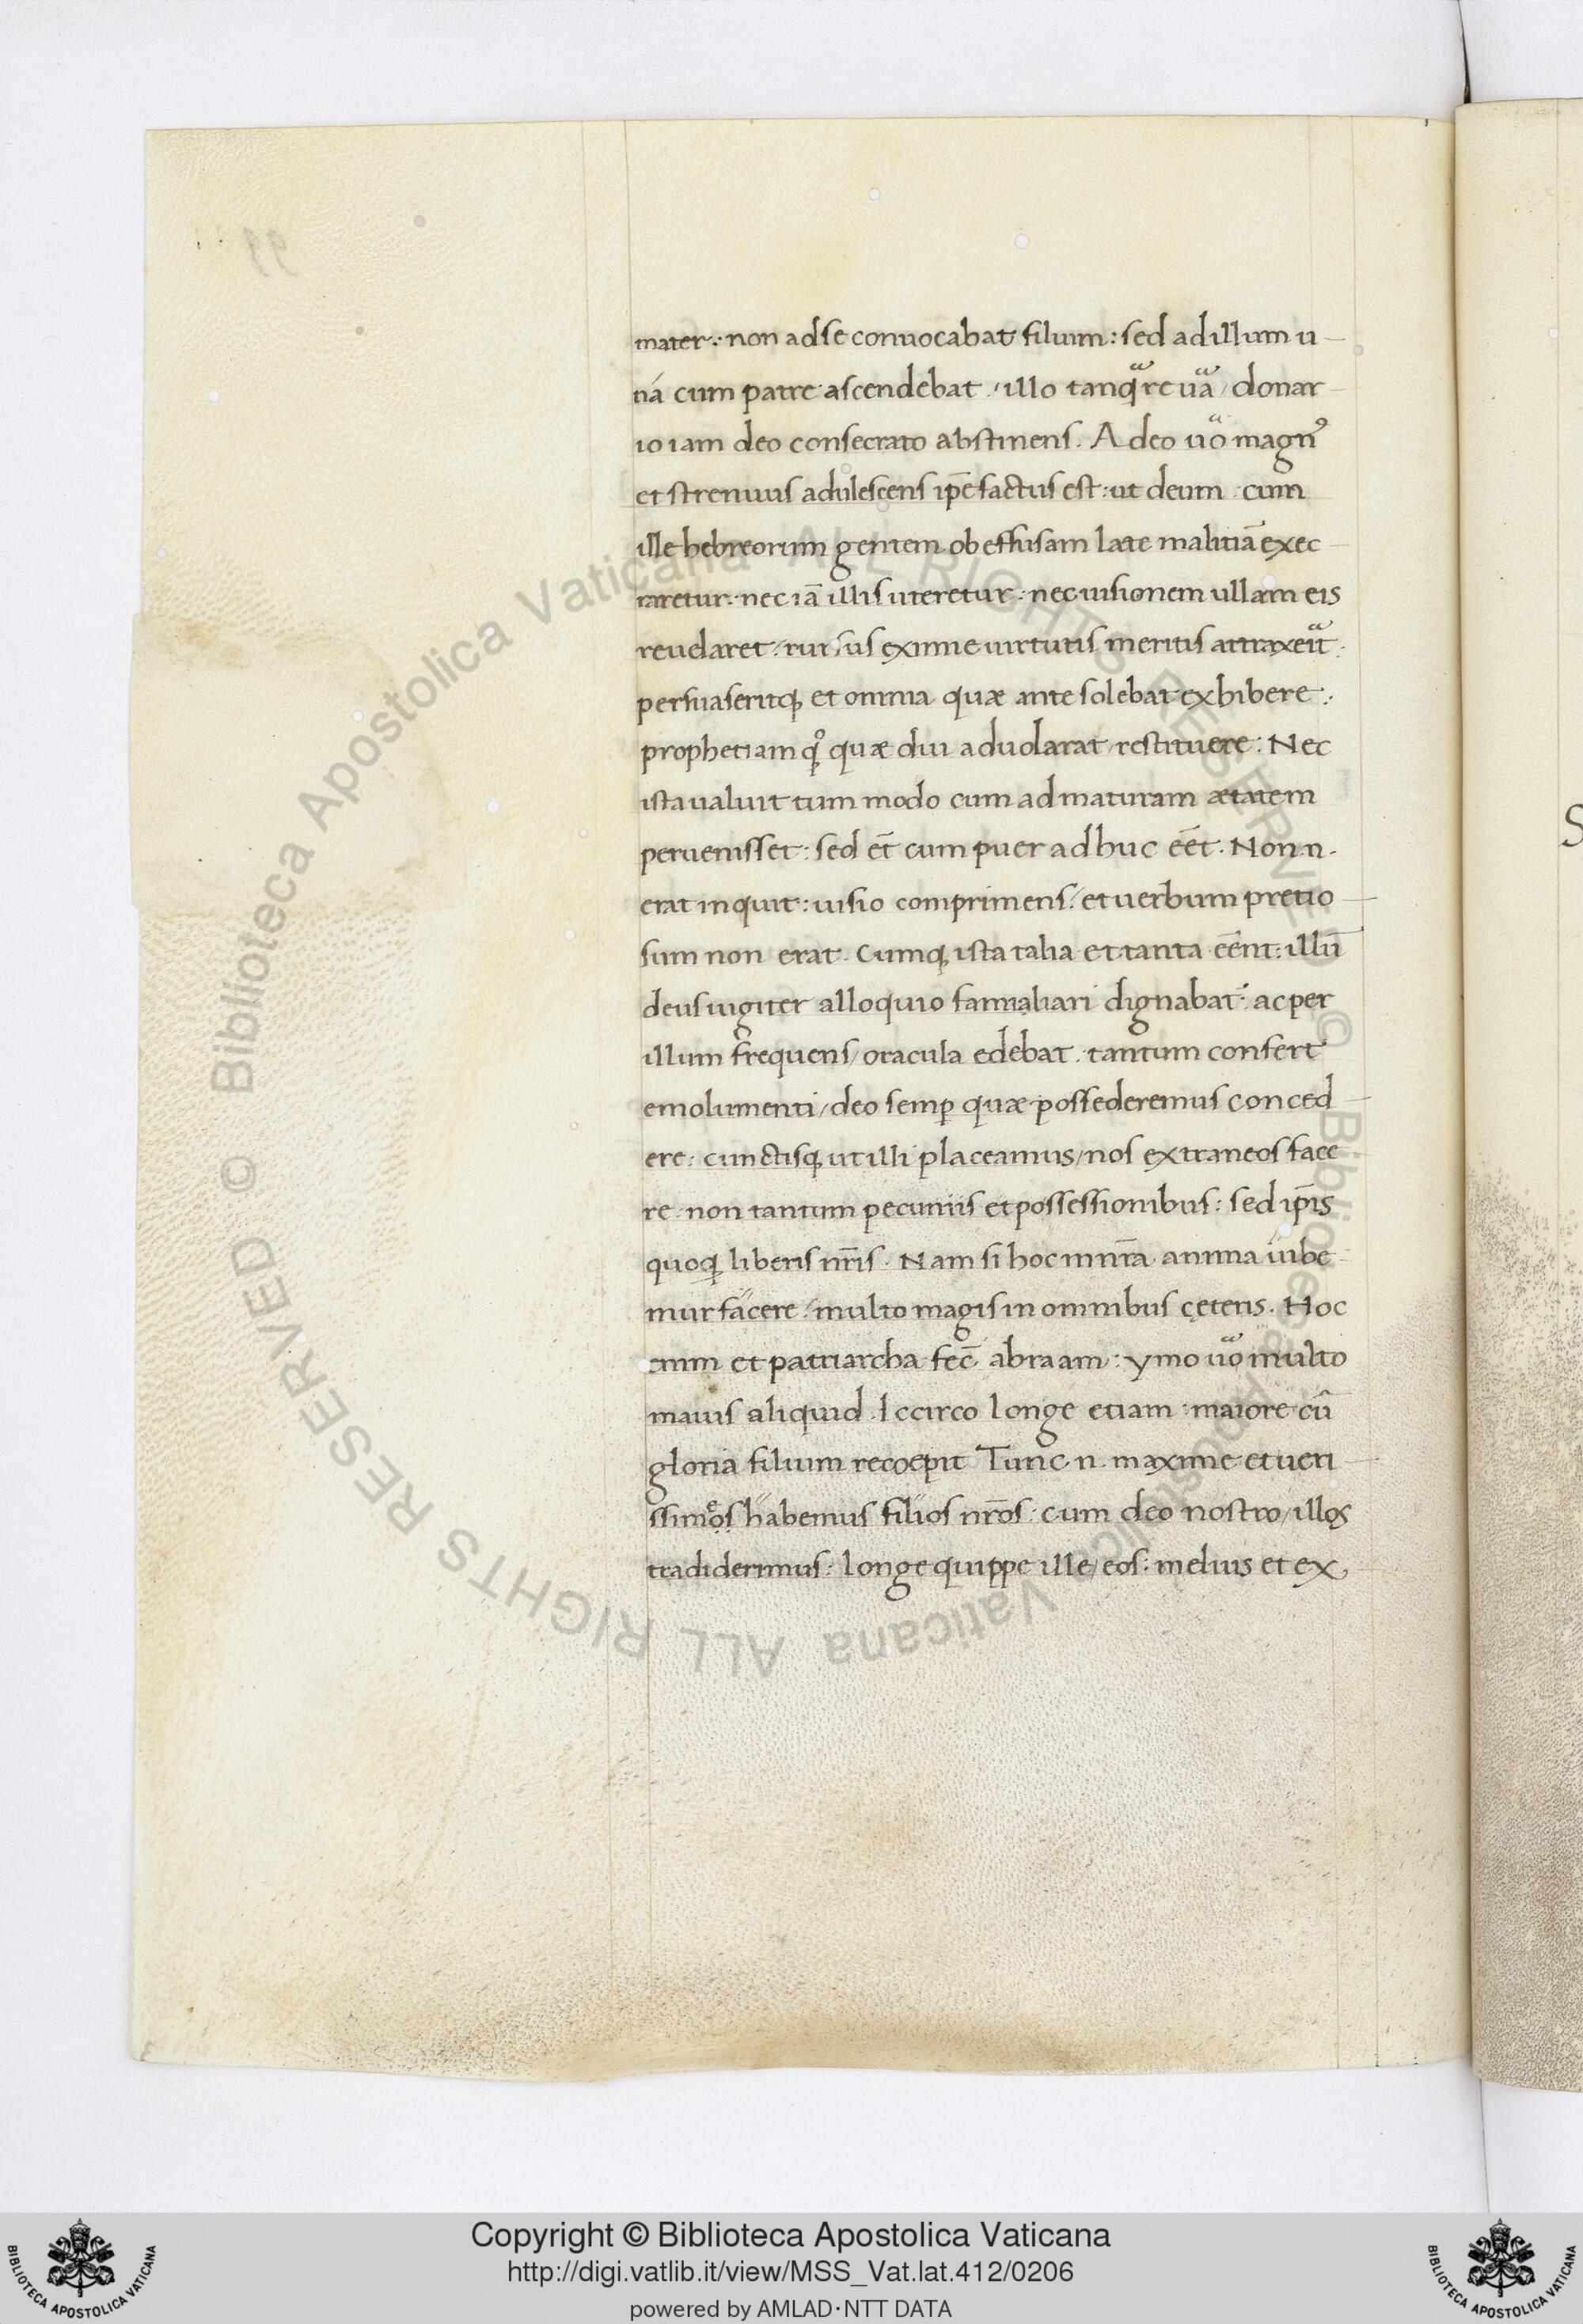 mater: non ad se conuocabat filium: sed ad illum u
ná cum patre ascendebat: illo tanq̃ re uã / donar
io iam deo consecrato abstinens. A deo uõ magn⁹
et strenuus adulescens ip̄e factus est: ut deum cum
ille hebreorum gentem ob effusam late malitiā exec
raretur: nec iā illis uteretur: nec uisionem ullam eis
reuelaret: rursus eximie uirtutis meritis attraxeit̃:
persuaseritq; et omnia quæ ante solebat exhibere:
prophetiam q̊; quæ diu aduolarat / restituere: Nec
ista ualuit tum modo cum ad maturam ætatem
peruenisset: sed et̄ cum puer ad huc eēt. Non .n.
erat inquit: uisio comprimens: et uerbum pretio
sum non erat. Cumq; ista talia et tanta eēnt: illū
deus iugiter alloquio famialiari dignabat᷑: ac per
illum frequens / oracula edebat. tantum confert
emolumenti / deo semp̱ quæ possederemus conced
ere: cunctisq; ut illi placeamus / nos extraneos face
re non tantum pecuniis et possessionibus: sed ip̄is
quoq; liberis nr̄is. Nam si hoc in nr̄a anima iube
mur facere: multo magis in omnibus ceteris. Hoc
enim et patriarcha fec̄ abraam: ymo uõ multo
maius aliquid. Iccirco longe etiam maiore cū
gloria filium recoepit Tunc .n. maxime et ueri
ssimeos habemus filios nr̄os: cum deo nostro / illos
tradiderimus: longe quippe ille / eos: melius et ex
Copyright © Biblioteca Apostolica Vaticana
http://digi.vatlib.it/view/MSS_Vat.lat.412/0206
powered by AMLAD·NTT DATA
BIBLIOTECA APOSTOLICA VATICANA
BIBLIOTECA APOSTOLICA VATICANA
© Biblioteca Apostolica Vaticana ALL RIGHTS RESERVED
© Biblioteca Apostolica Vaticana ALL RIGHTS RESERVED